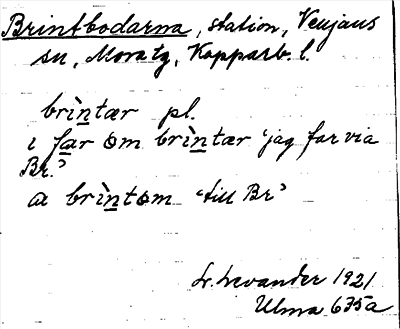 Brintbodarna, station, Venjans
sn, Mora tg, Kopparb. l.
brìntær pl.
ı far om brìntær 'jag far via
Br.'
a brìntom 'till Br'
L. Levander 1921
Ulma 635a